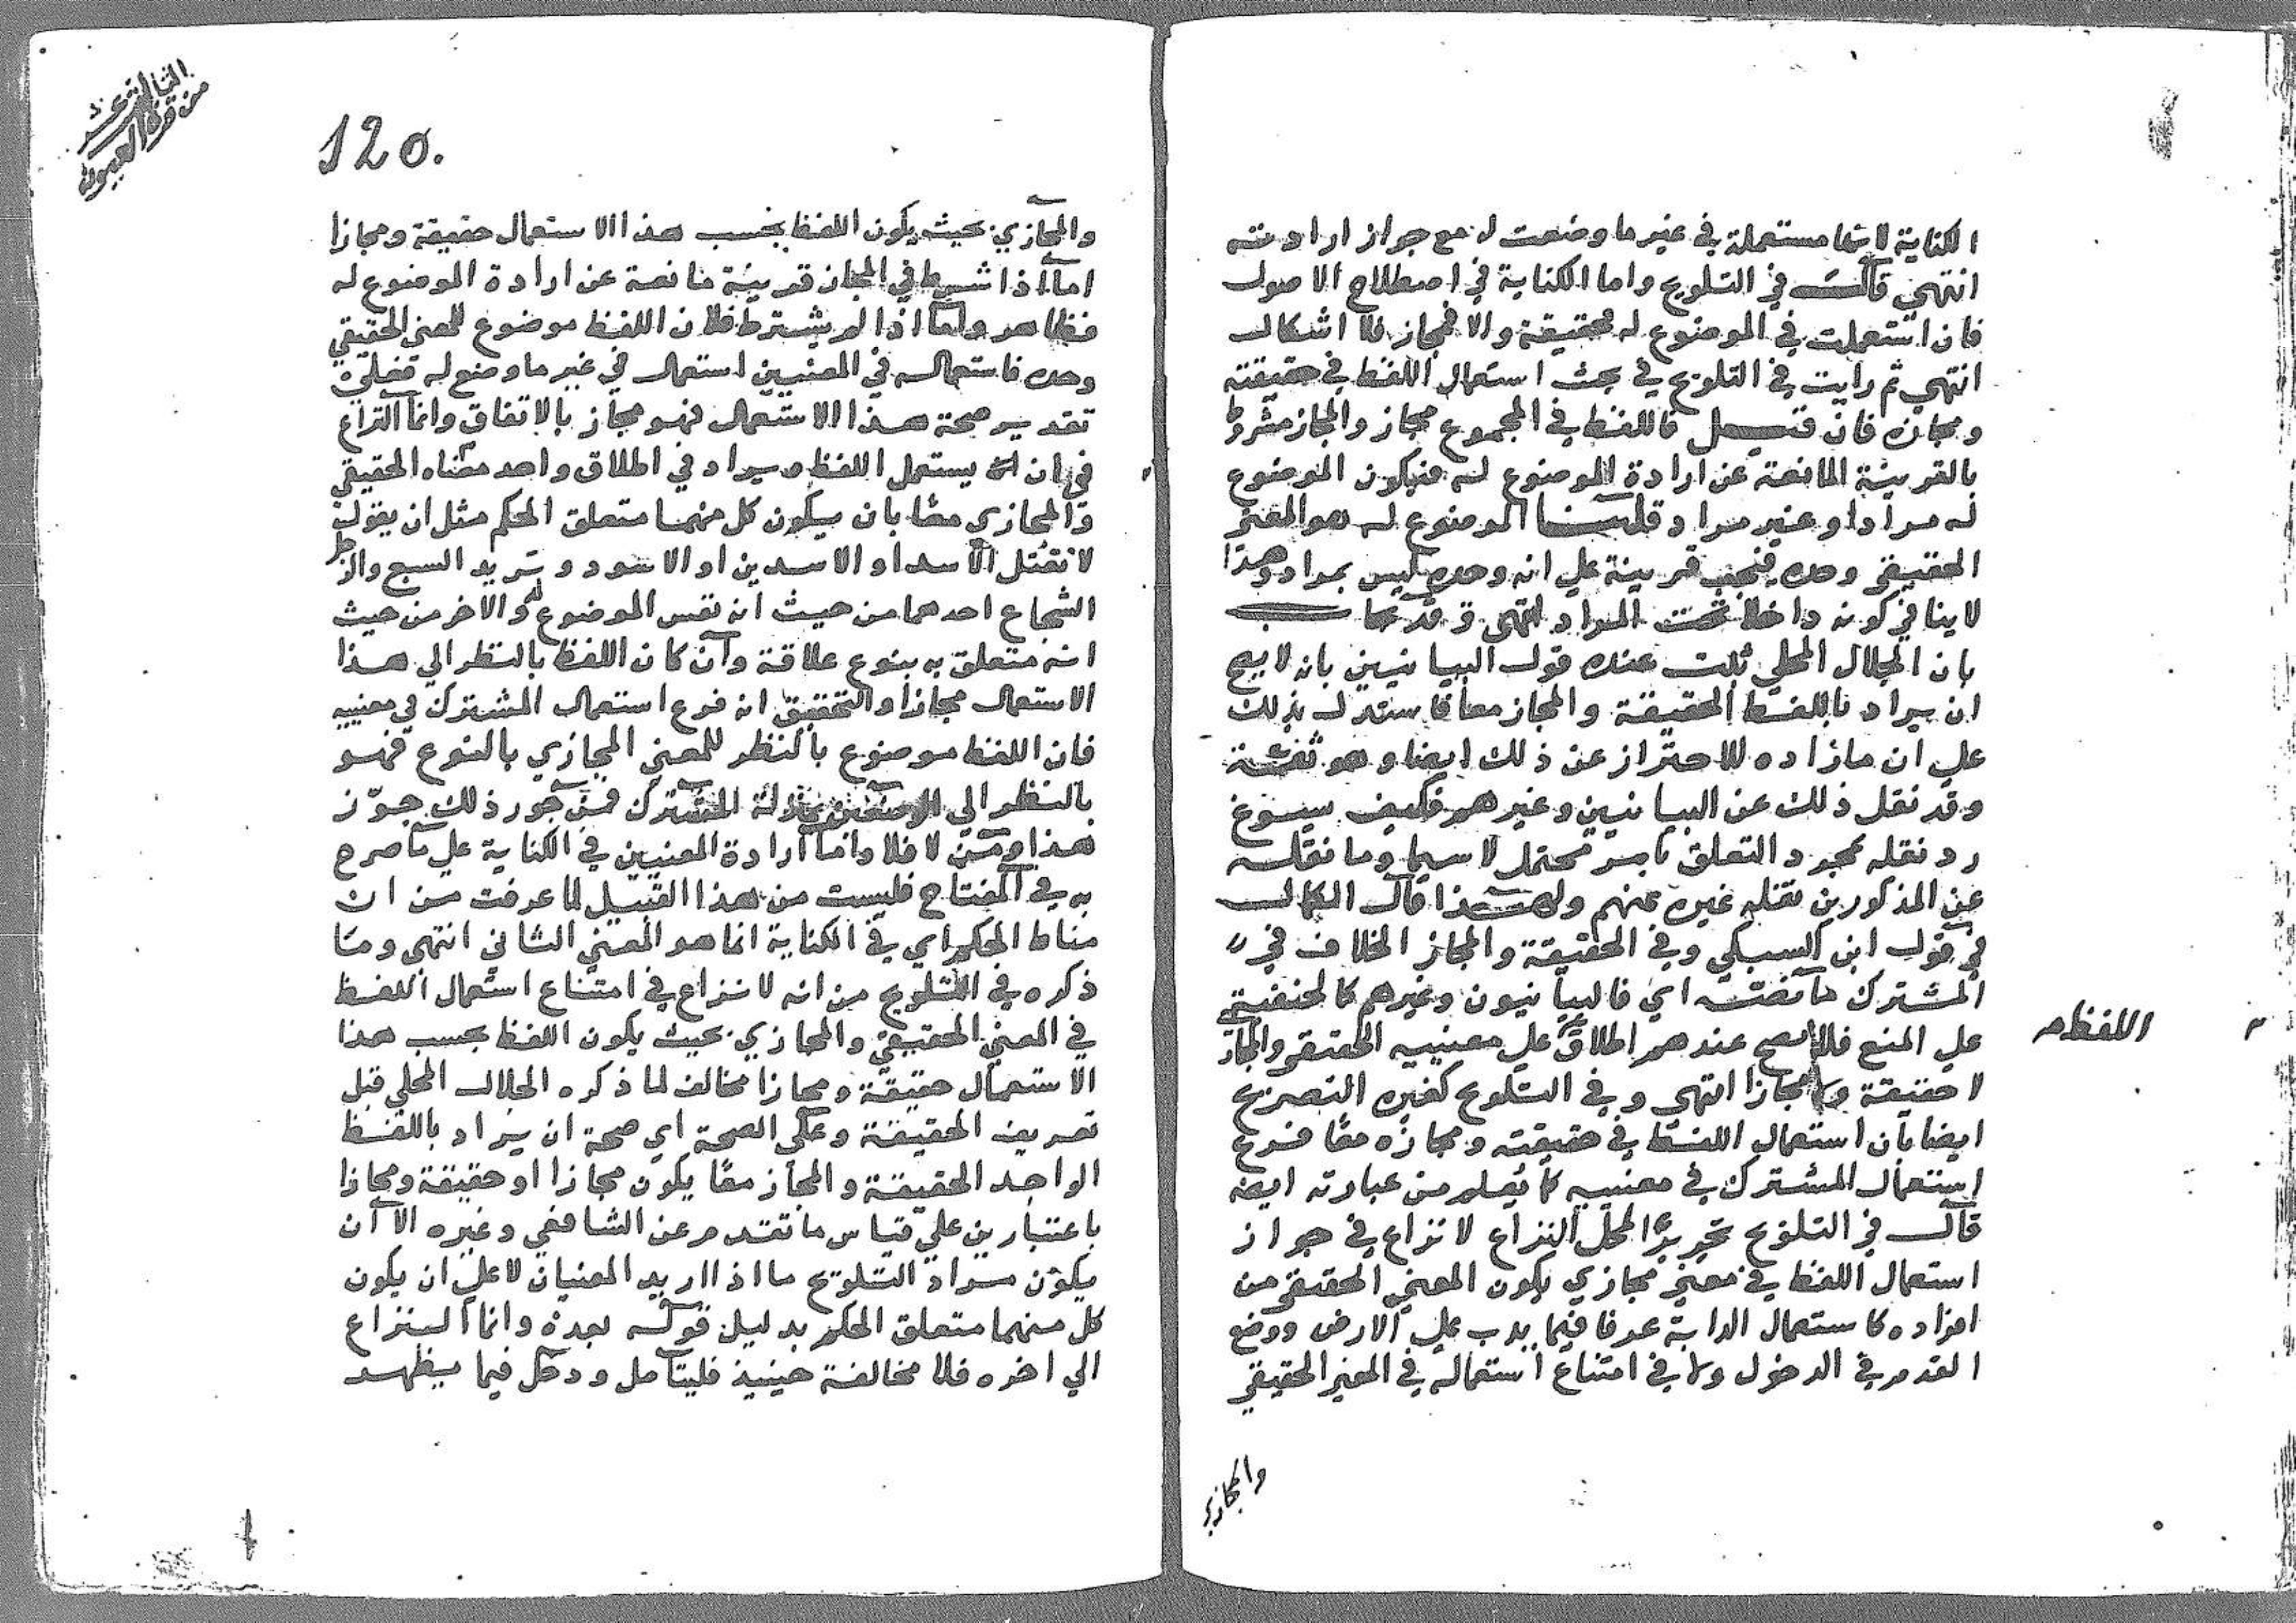 الكناية لانها مستعملة في غير ما وضعت له مع جواز ارادته
انتهى قال في التلويح واما الكناية في اصطلاح الاصول
فان استعملت في الموضوع له فحقيقة والا فمجاز فلا اشكال
انتهى ثم رايت في التلويح في بحث استعمال اللفظ في حقيقته
ومجازه فان قيل فاللفظ في المجموع مجاز والمجاز مشروط
بالقرينة المانعة عن ارادة الموضوع له فيكون الموضوع
له مرادا وغير مراد قلنا الموضوع له هو المعنى
الحقيقي وحده فيجب قرينة على انه وحده ليس بمراد وهذا
لا ينافي كونه داخلا تحت المراد انتهى وقد
بان الجلال المحلي ثبت عنده قول البيانيين بانه لا يصح
ان يراد باللفظ الحقيقة والمجاز معا فاستدل بذلك
على ان مازاده للاحتراز عن ذلك ايضا وهو ثقة
وقد نقل ذلك عن البيانيين وغيرهم فكيف يسوغ
رد نقله بمجرد التعلق بامر محتمل لا سيما وما نقله
عن المذكورين نقله غيره عنهم ولهذا قال الكمال
في قول ابن السبكي وفي الحقيقة والمجاز الخلاف في
المشترك ما نصه اي فالبيانيون وغيرهم كالحنفية
على المنع فلا يصح عندهم اطلاق على معنييه الحقيقي والمجازي
اللفظ
لا حقيقة ولا مجازا انتهى وفي التلويح كغيره التصريح
ايضا بان استعمال اللفظ في حقيقته ومجازه معا فرع
استعمال المشترك في معنييه كما يعلم من عبارته ايضه
قال في التلويح تحريرا لمحل النزاع لا نزاع في جواز
استعمال اللفظ في معنى مجازي يكون المعنى الحقيقي من
افراده كاستعمال الدابة عرفا فيما يدب على الارض ووضع
القدم في الدخول ولا في امتناع استعماله في المعنى الحقيقي
والمجازي
الثالث عشر
من قرة العيون
120.
والمجازي بحيث يكون اللفظ بحسب هذا الاستعمال حقيقة ومجازا
اما اذا شرط في المجاز قرينة مانعة عن ارادة الموضوع له
فظاهر واما اذا لم يشترط فلان اللفظ موضوع للمعنى الحقيقي
وحده فاستعماله في المعنيين استعمال في غير ما وضع له فعلى
تقدير صحة هذا الاستعمال فهو مجاز بالاتفاق وانما النزاع
في ان يستعمل اللفظ ويراد في اطلاق واحد معناه الحقيقي
والمجازي معا بان يكون كل منهما متعلق الحكم مثل ان يقول
لا تقتل الاسد او الاسدين او الاسود وتريد السبع والرجل
الشجاع احدهما من حيث انه نفس الموضوع له والاخر من حيث
انه متعلق به بنوع علاقة وان كان اللفظ بالنظر الى هذا
الاستعمال مجازا والتحقيق انه فرع استعمال المشترك في معنييه
فان اللفظ موضوع بالنظر للمعنى المجازي بالنوع فهو
بالنظر الى الوضعين بمنزلة المشترك فمن جوز ذلك جوّز
هذا ومن لا فلا واما ارادة المعنيين في الكناية على ما صرح
به في المفتاح فليست من هذا القبيل لما عرفت من ان
مناط الحكم اي في الكناية انما هو المعنى الثاني انتهى وما
ذكره في التلويح من انه لا نزاع في امتناع استعمال اللفظ
في المعنى الحقيقي والمجازي بحيث يكون اللفظ بحسب هذا
الاستعمال حقيقة ومجازا مخالف لما ذكره الجلال المحلي قبل
تعريف الحقيقة وعلى الصحة اي صحة ان يراد باللفظ
الواحد الحقيقة والمجاز معا يكون مجازا او حقيقة ومجازا
باعتبارين على قياس ما تقدم عن الشافعي وغيره الا ان
يكون مراد التلويح ما اذا اريد المعنيان لا على ان يكون
كل منهما متعلق الحكم بدليل قوله بعده وانما النزاع
الى اخره فلا مخالفة حينيذ فليتامل ودخل فيما يظهر